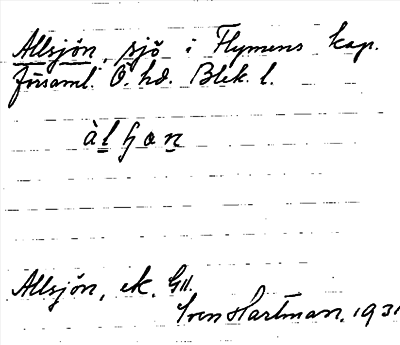 Allsjön, sjö i Flymens kap.
församl. Ö. hd. Blek. l.
Allsjön, ek. G11.
Sven Hartman. 1931